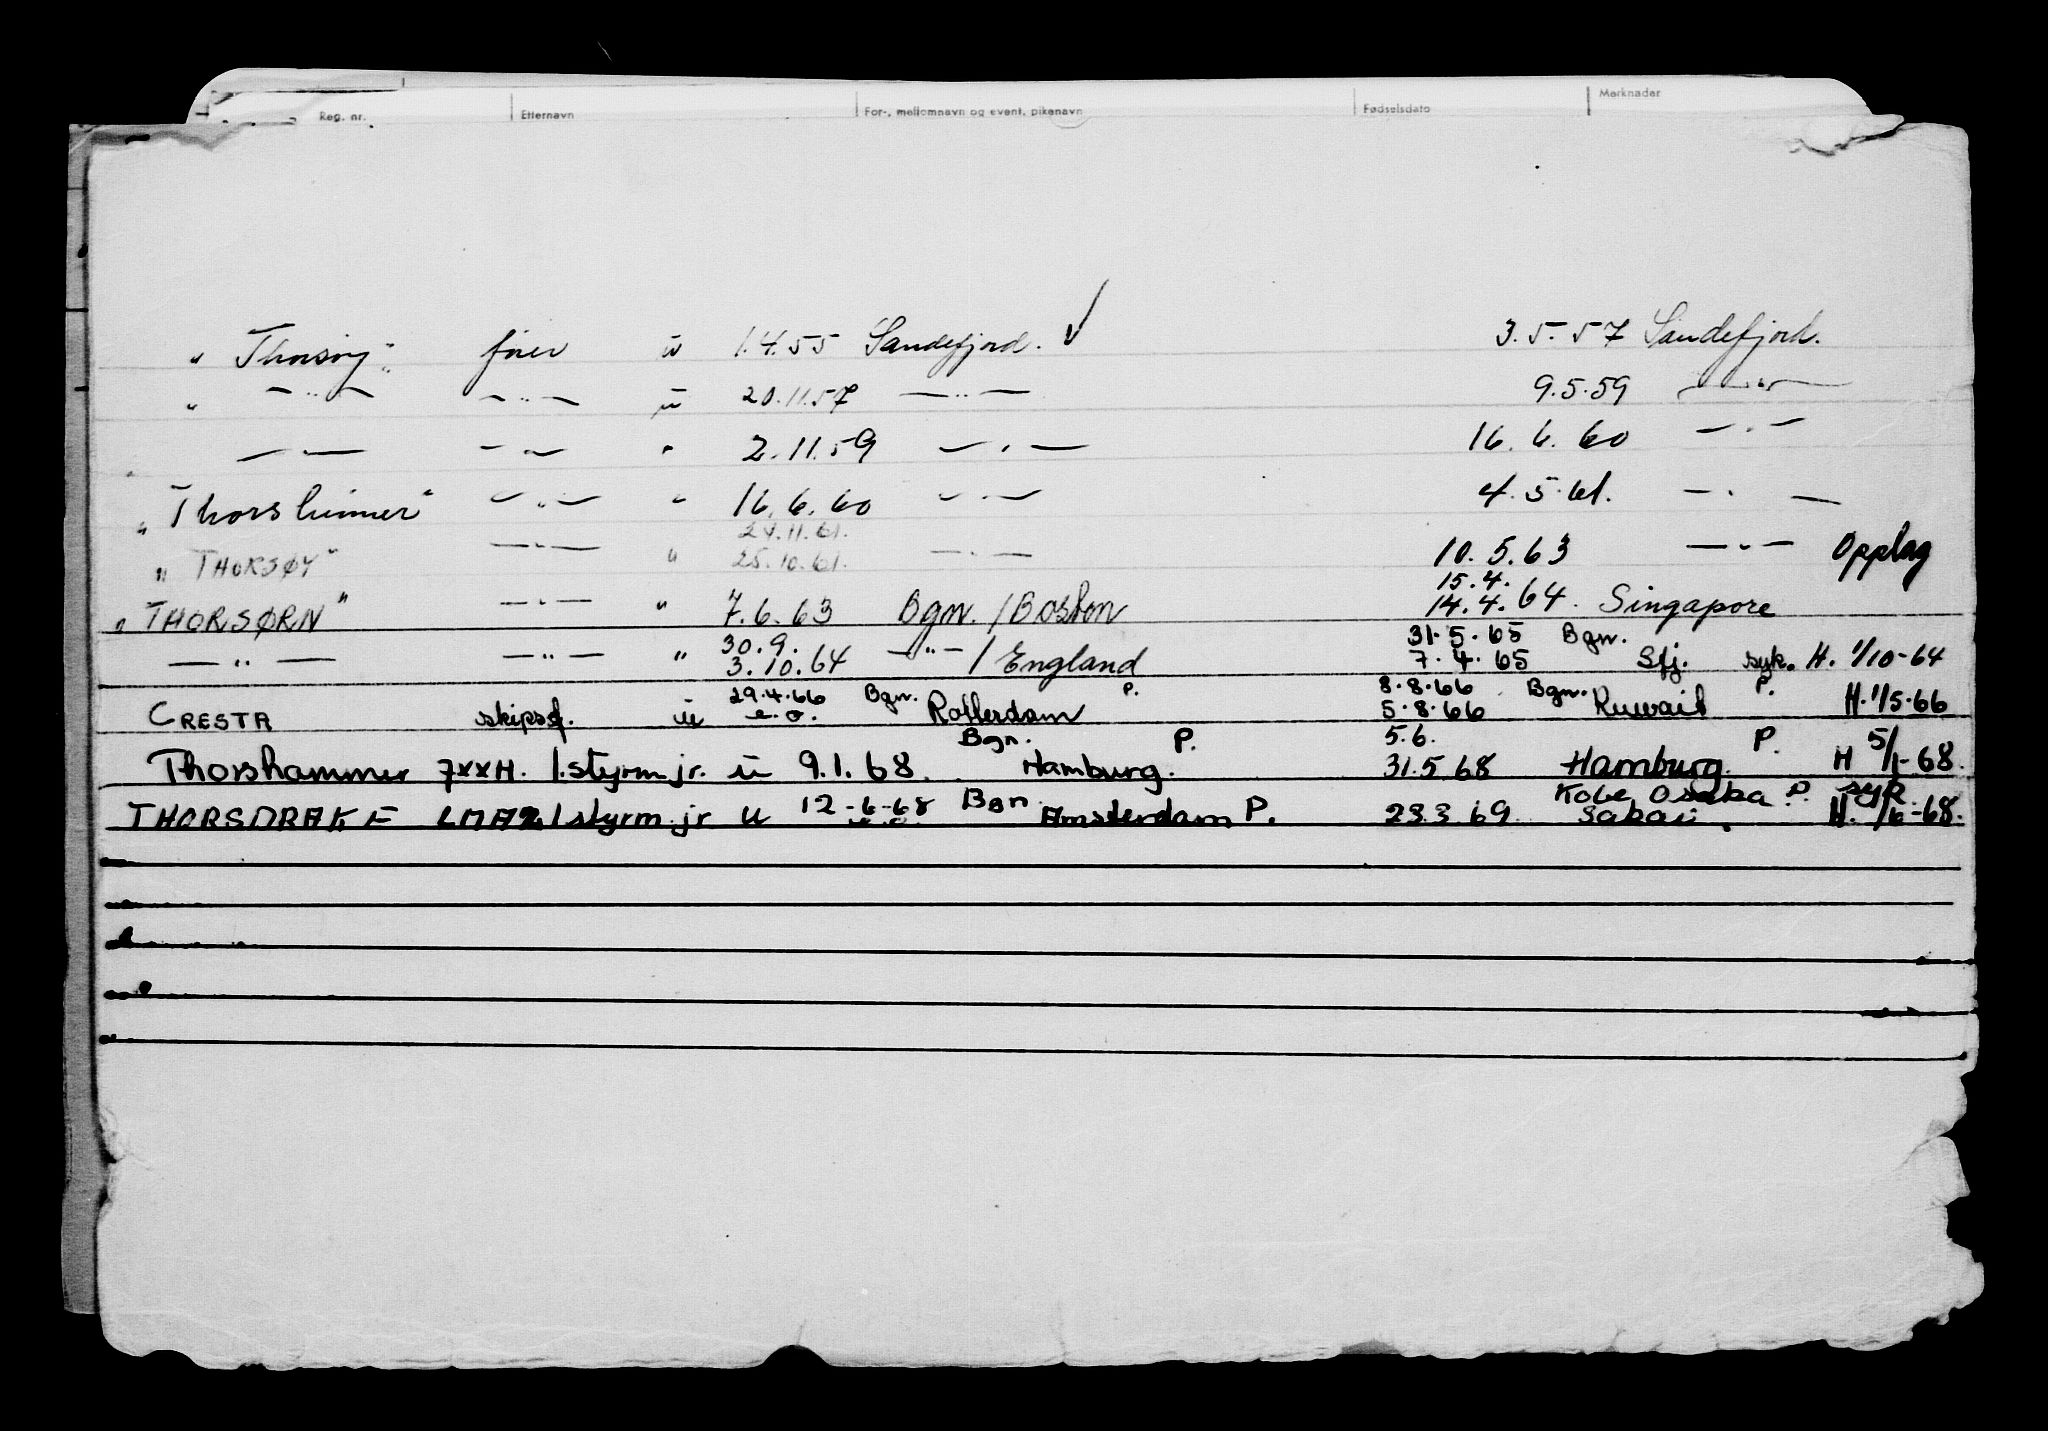 Reg. nr. Etternavn For-, mellomnavn og event. pikenavn Fødselsdato Merknader
" Thorsøy " fører u 1.4.55 Sandefjord. ✓ 3.5.57 Sandefjord.
" — " — — " — u 20.11.57 — " — 9.5.59 — " —
" — " — — " — " 2.11.59 — " — 16.6.60 — " —
" Thorshimer " — " — " 16.6.60 — " — 4.5.61. — " —
24.11.61.
" THORSØY " — " — " 25.10.61. — " — 10.5.63 — " — Opplag
15.4.
" THORSØRN " — " — " 7.6.63 Bgn. / Boston 14.4.64. Singapore
30.9. 31.5.65 Bgn.
— " — — " — " 3.10.64 — " — / England 7.4.65 Sfj. syk. H. 1/10-64
29.4.66 Bgn. P. 8.8.66 Bgn. P.
CRESTA skipsf. u s.d. Rotterdam 5.8.66 Kuwait H. 1/5-66
Bgn. P. 5.6. P.
Thorshammer 7xxH. 1.styrm jr. u 9.1.68. Hamburg. 31.5 68 Hamburg. H 5/1-68.
Kobe Osaka P. syk
THORSDRAKE 1styrm jr u 12-6-68 Bgn. Amsterdam P. 23 3 69 Sakai. H. 1/6-68.